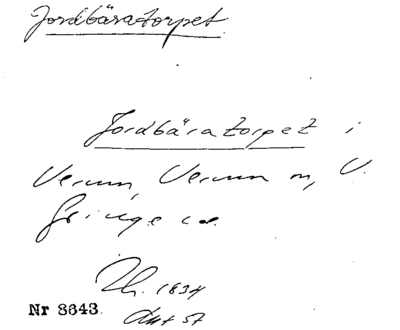 Jordbäratorpet.
Jordbäratorpet i
Verum, Verum sn, V.
Göinge
1834
57
Nr 8643.